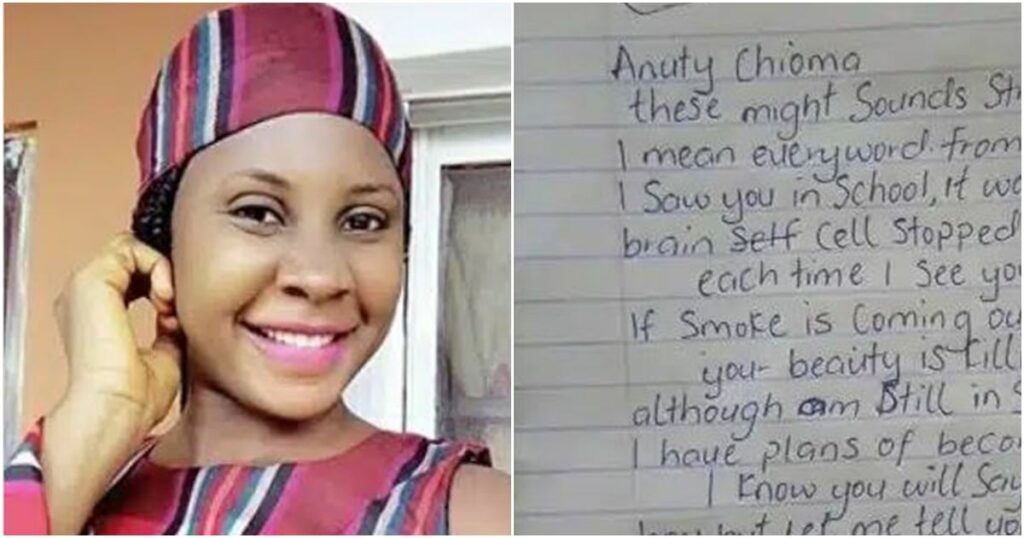 Anuty Chioma
these might Sounds St
I mean everyword. from
I Saw you in School, it wa
brain self Cell Stopped
each time I See you
If Smoke is Coming ou
your beauty is till
although am Still in S
I have plans of beco
I Know you will Say
but let me tell you